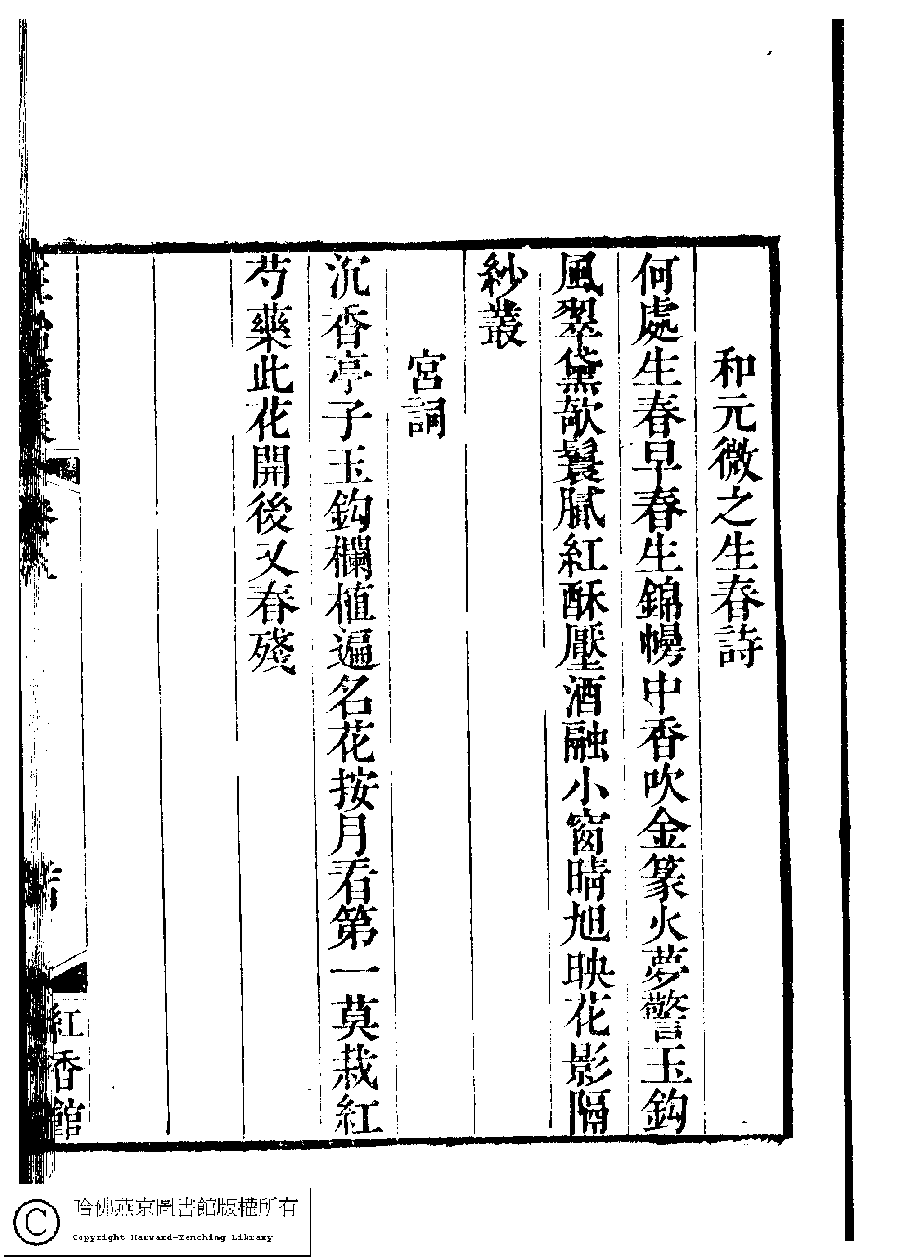 和元微之生春詩
何處生春早春生錦幌中香吹金篆火夢警玉鈎
風翠黛欹鬟膩紅酥壓酒融小窗晴旭映花影隔
紗叢
宮詞
沉香亭子玉鈎欄植遍名花按月看第一莫栽紅
芍藥此花開後又春殘
紅香館
哈佛燕京圖書館版權所有
Copyright Harvard-Yenching Library